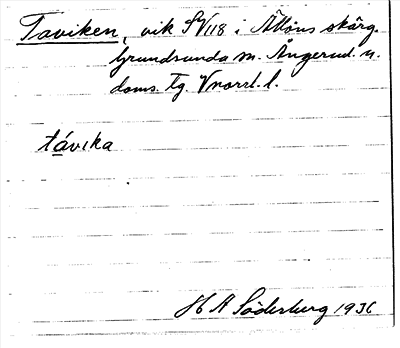 Taviken, vik SV118 i Ällöns skärg.
Grundsunda sn. Ångerml. n.
doms. tg. Vnorrl. l.
távika
H A Söderberg 1936